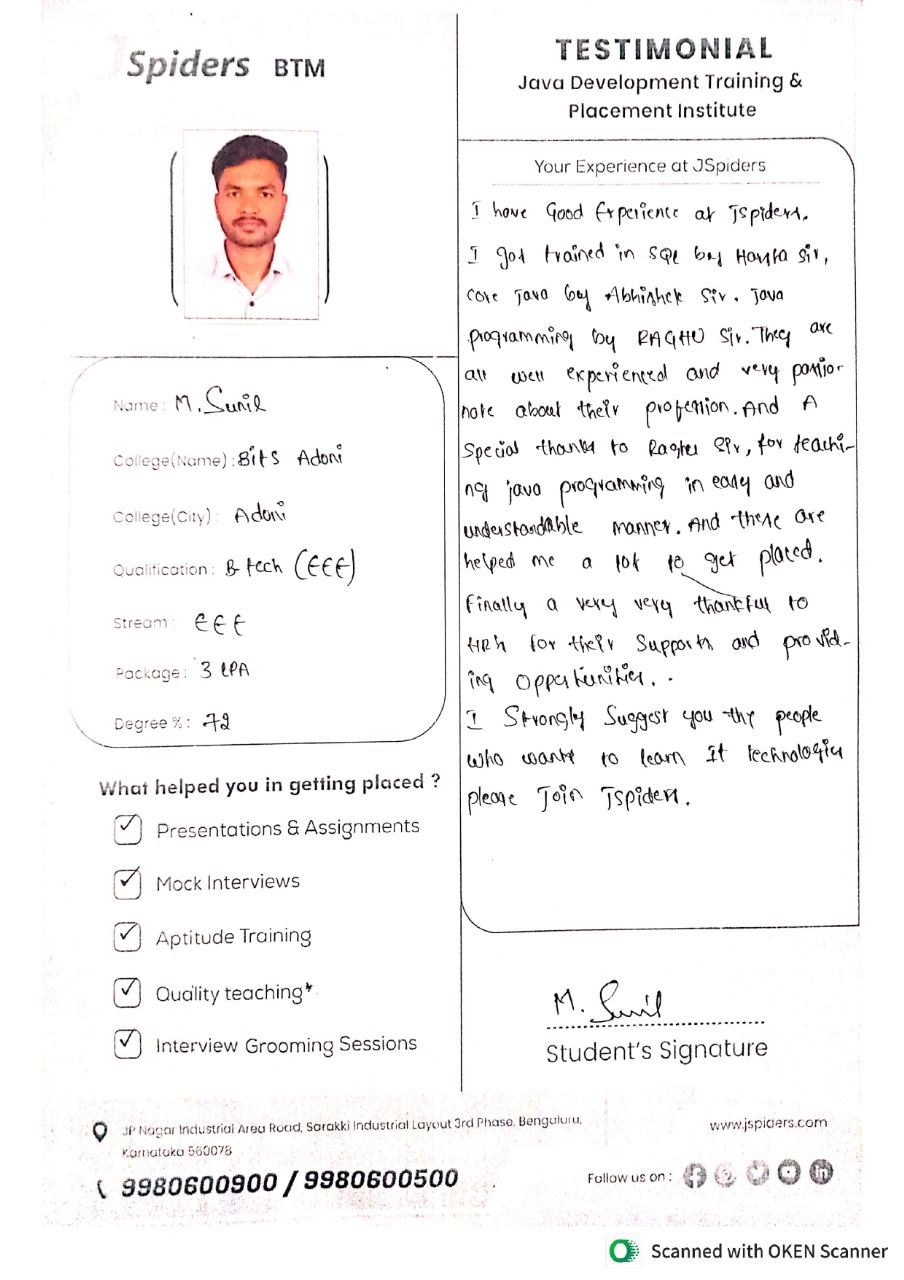 JSpiders BTM
TESTIMONIAL
Java Development Training &
Placement Institute
Your Experience at JSpiders
I have Good Experience at JSpiders.
I got trained in SQL by Sir,
core Java by Abhishek Sir. Java
programming by RAGHU Sir. They are
all well experienced and very passio-
nate about their profession. And A
Special thanks to Raghu Sir, for teachi-
ng java programming in easy and
understandable manner. And these are
helped me a lot to get placed.
Finally a very very thankful to
HRs for their Supports and provid-
ing Opportunities..
I Strongly Suggest you the people
who wants to learn It technologies
please Join Jspiders.
Name: M. Sunil
College(Name): Bits Adoni
College(City): Adoni
Qualification: B tech (EEE)
Stream: EEE
Package: 3 LPA
Degree %: 72
What helped you in getting placed ?
Presentations & Assignments
Mock Interviews
Aptitude Training
Quality teaching*
Interview Grooming Sessions
M. Sunil
Student's Signature
JP Nagar Industrial Area Road, Sarakki Industrial Layout 3rd Phase, Bengaluru,
Karnataka 560078
9980600900 / 9980600500
www.jspiders.com
Follow us on :
Scanned with OKEN Scanner